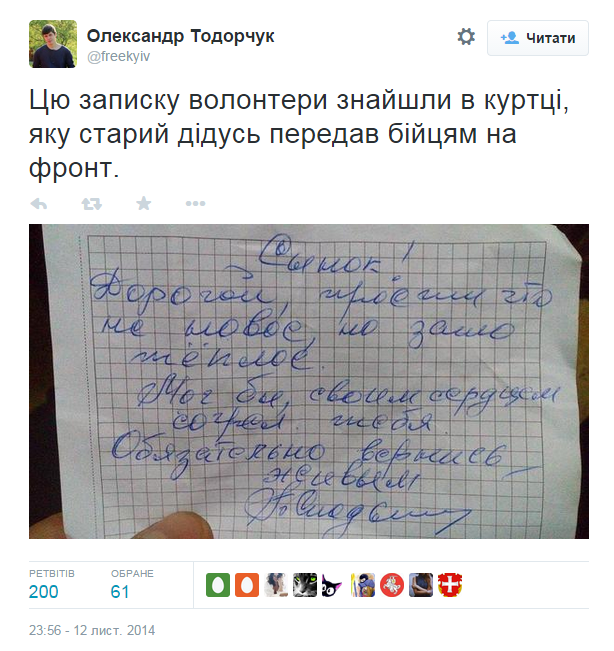 Олександр Тодорчук
@freekyiv
Читати
Цю записку волонтери знайшли в куртці,
яку старий дідусь передав бійцям на
фронт.
Сынок!
Дорогой, прости что
не новое, но зато
тёплое.
Мог бы, своим сердцем
согрел тебя.
Обязательно вернись
живым
РЕТВІТІВ
ОБРАНЕ
200
61
23:56 - 12 лист. 2014